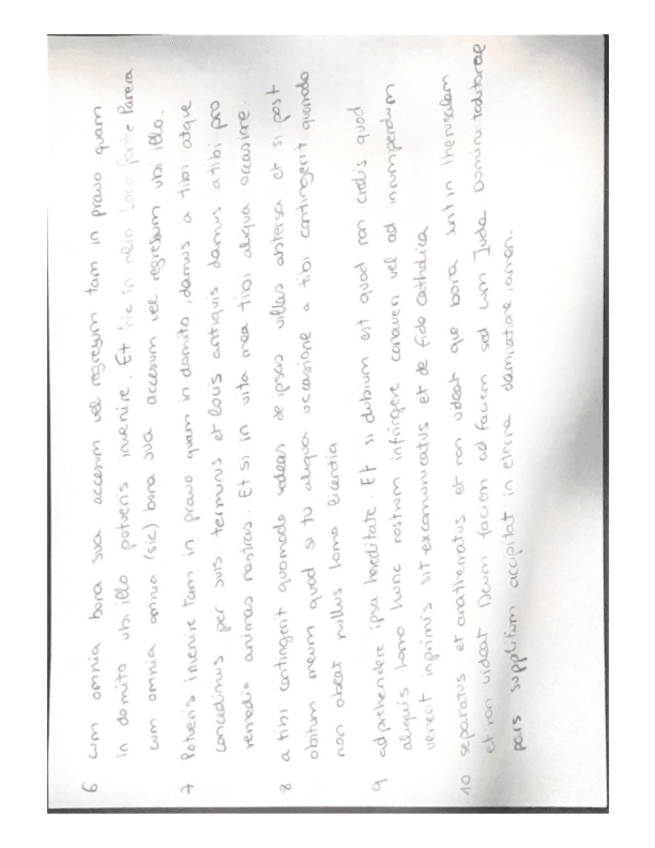 6 cum omnia bona sua accesum vel regresum tam in pravo quam
in domito ubi illo potueris invenire. Et hic in alio Loco forte Parera
cum omnia (sic) bona sua accesum vel regresum ubi illo.
7 Potueris invenire tam in pravo quam in domito, damus a tibi atque
concedimus per suis terminus et locis antiquis damus a tibi pro
remedio animas nostras. Et si in vita mea tibi aliqua occasione.
8 a tibi contingerit quomodo sedeas de ipsas villas abtersa et si post
obitum meum quod si tu aliqua occasione a tibi contingerit quando
non abeat nullus homo licentia
9 adprehendere ipsa hereditate. Et si dubium est quod non credis quod
aliquis homo hunc nostrum infringere conaven vel ad inrumpendum
venerit inprimis sit excomunicatus et de fide catholica
10 separatus et anathematus et non videat que bona sunt in Iherusalem
et non videat Deum facien ad faciem sed cum Juda Domini traditorae
pars supplitium accipitat in eterna damnatione, amen.